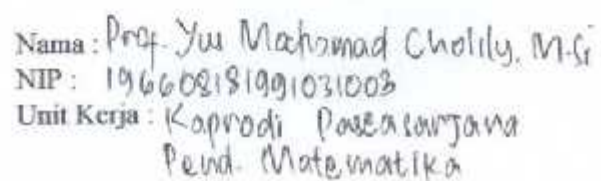 Nama : Prof. Yus Mochamad Cholily, M.Si
NIP : 196608181991031003
Unit Kerja : Kaprodi Pascasarjana
Pend. Matematika